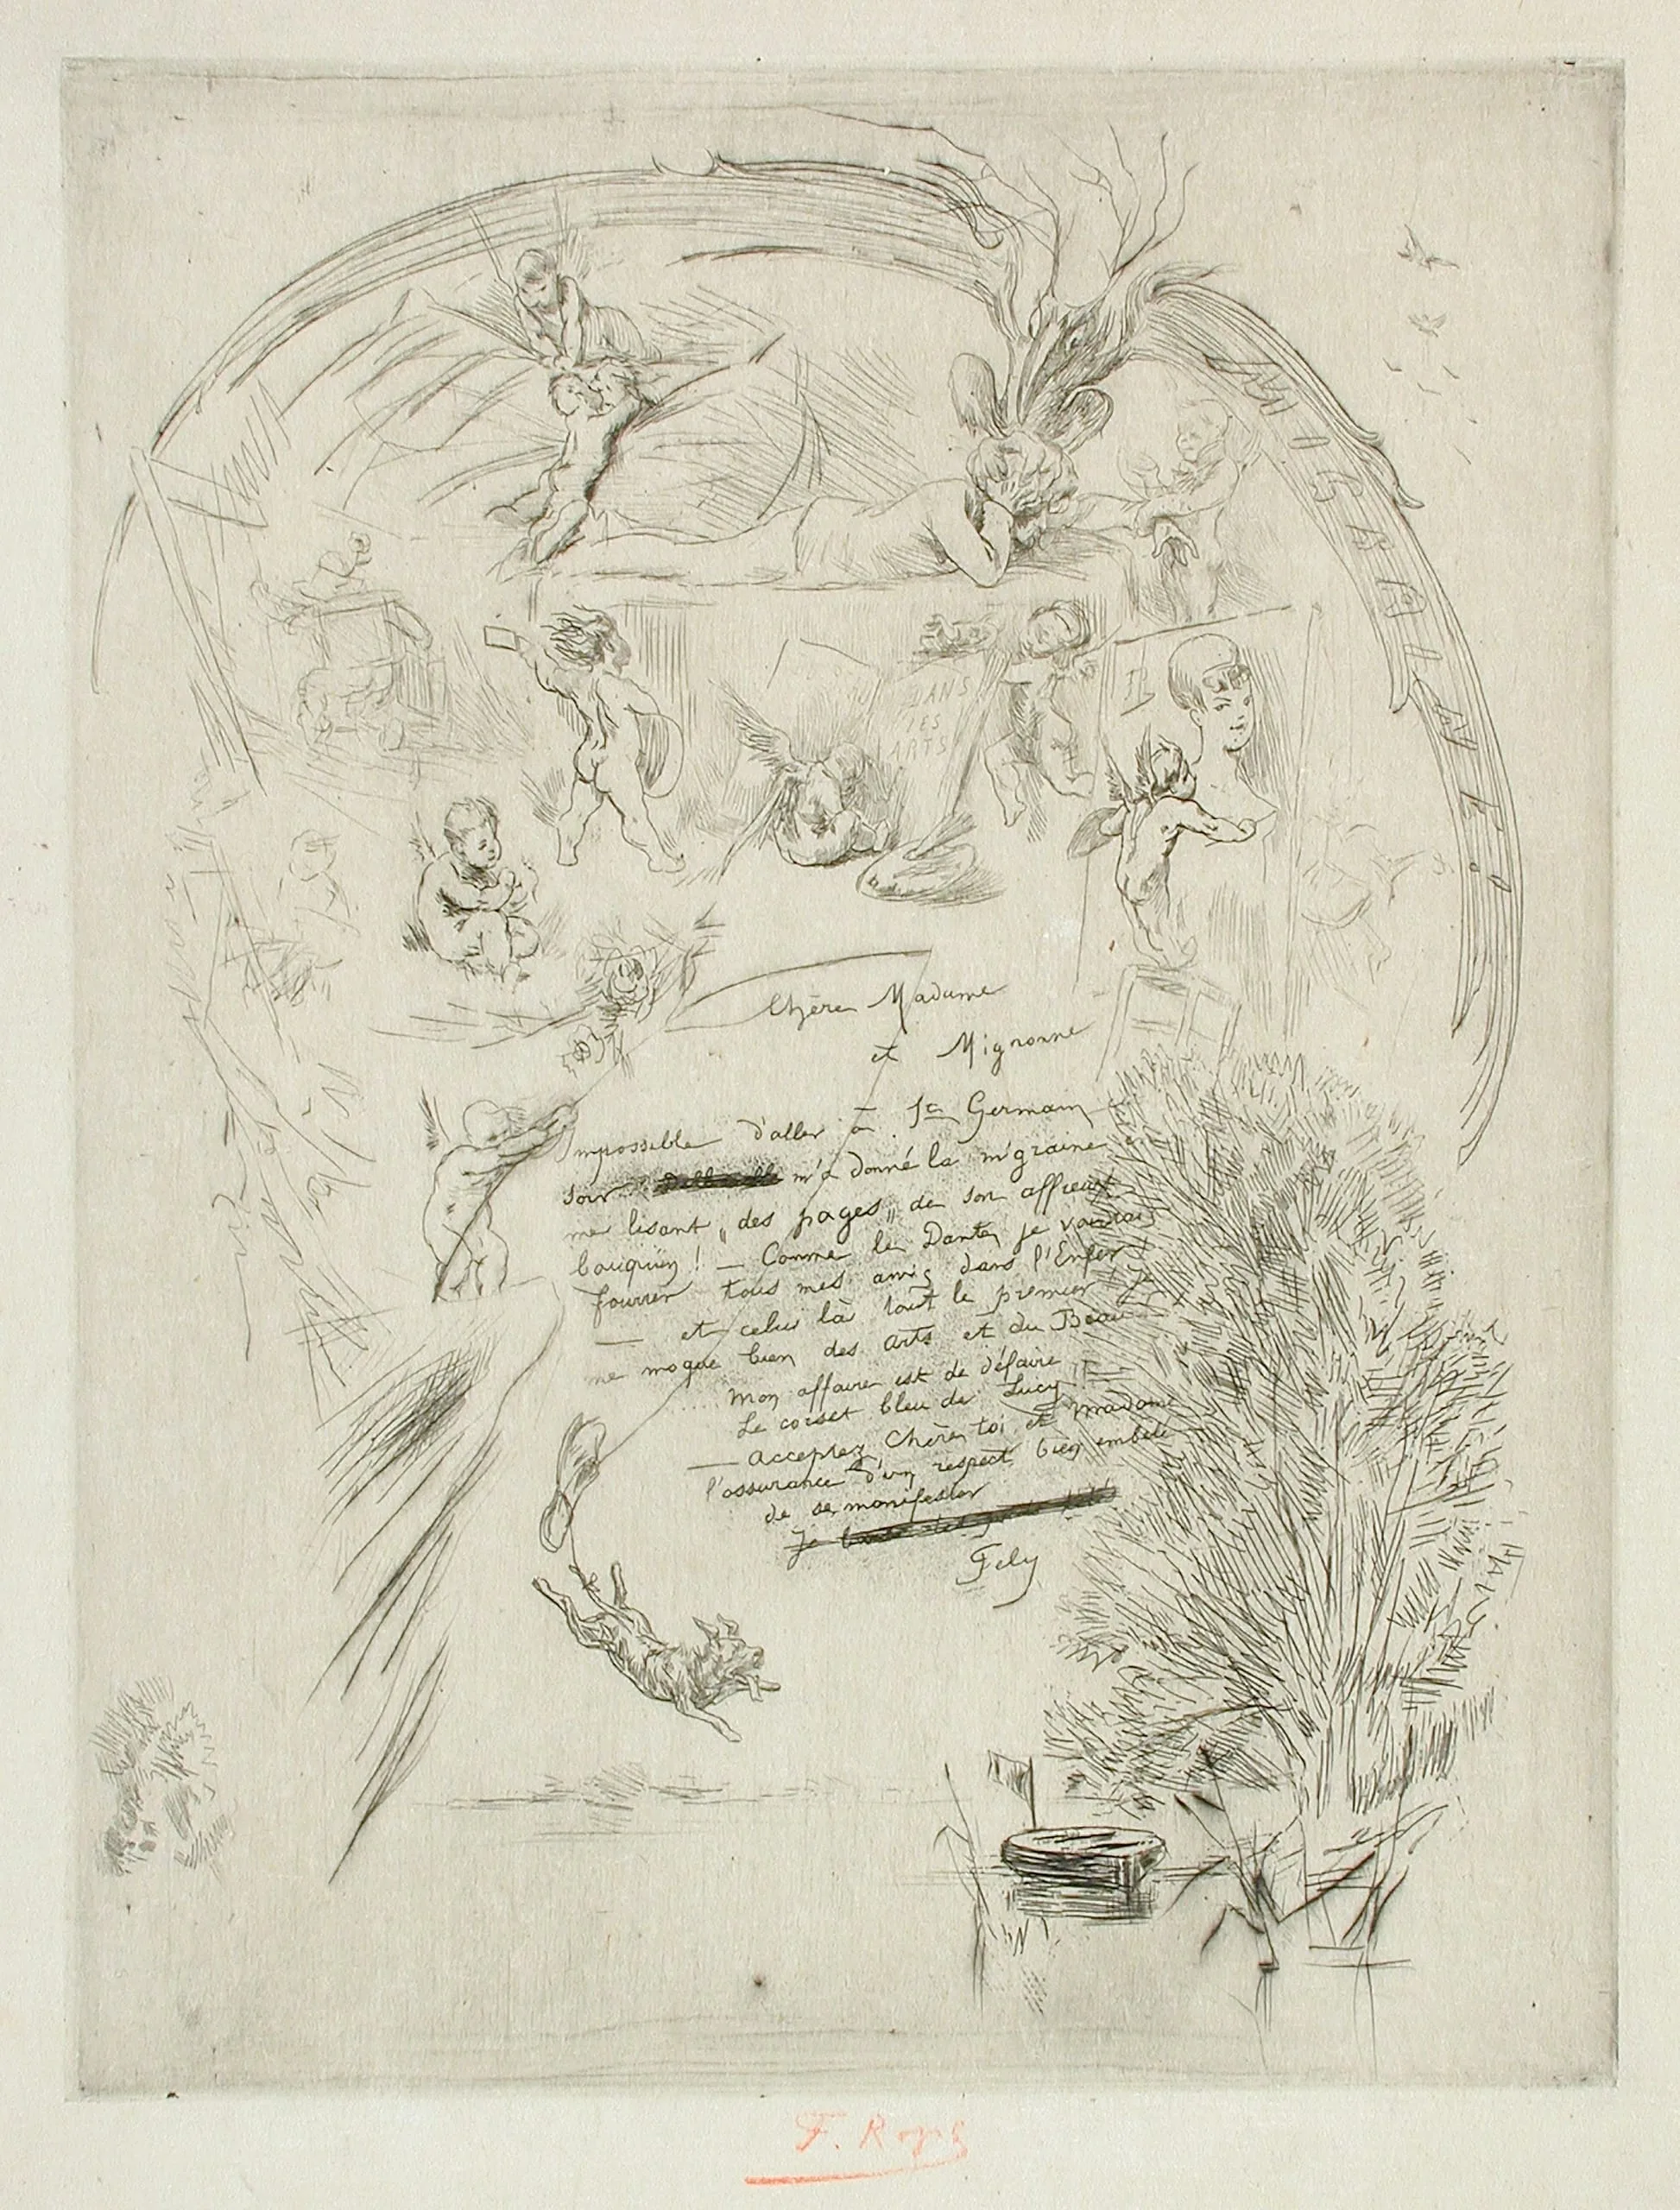 DANS
LES
ARTS
Chère Madame
et Mignonne
Impossible d'aller à St Germain
soir m'a donné la migraine
me lisant „des pages„ de son affreux
bouquin ! — Comme le Dante, je voudrais
fourrer tous mes amis dans l'Enfer
— et celui là tout le premier
me moque bien des Arts et du Beau
.... Mon affaire est de défaire
Le corset bleu de Lucy
— Acceptez, Chère, toi et Madame
l'assurance d'un respect bien embêté
de se manifester
Je
Fély
F. Rops